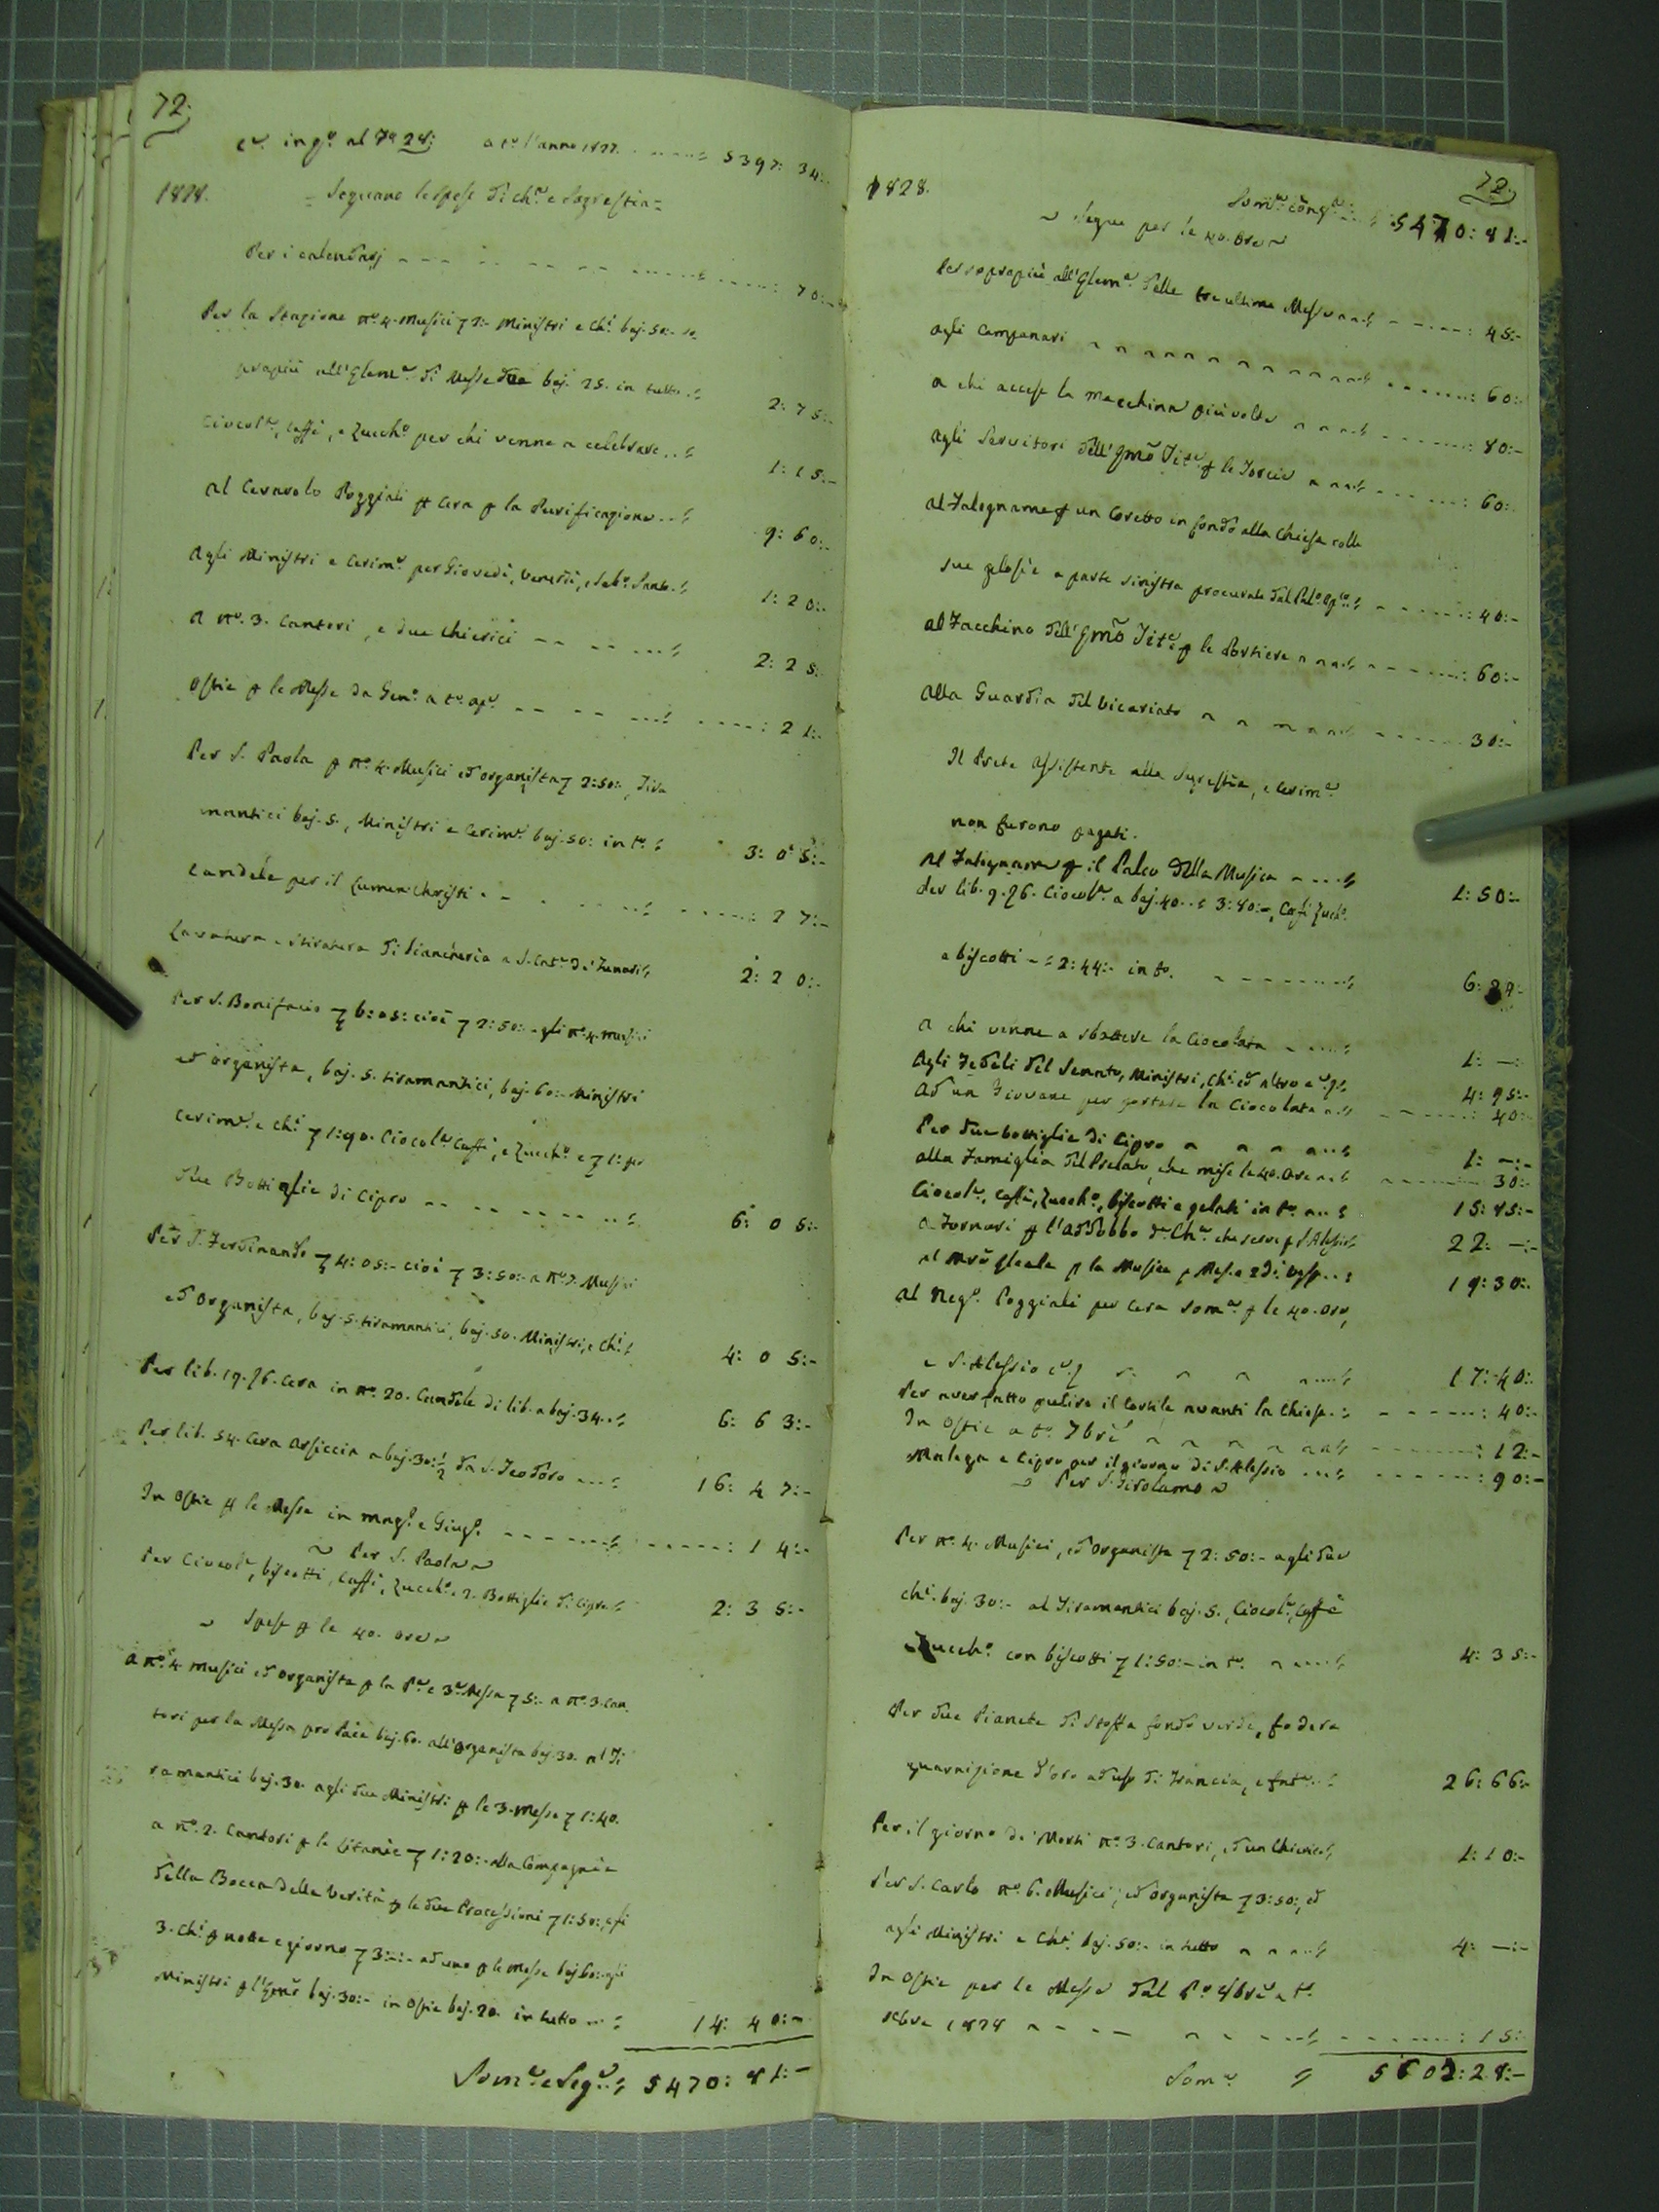 72.
al 7a 28: a to. l'anno 1827. 5397: 34:
1828. = Seguano le spese di Cha. e Sagrestia =
Per i calendarj : 70:-
Per la Stazione no. 4. Musici 7 2:- Ministri e Chi. baj. 50:- so-
prapiù all'Elema. di Messe due baj. 25. in tutto 2: 75:-
Ciocolta., Caffè, e Zuccho. per chi venne a celebrare 1: 15:-
Al Ceraroto Poggiali per Cera per la Purificazione 9: 60:-
Agli Ministri e Cerime. per Giovedì, Venerdì, e Sabo. Santo 1: 20:-
A no. 3. Cantori, e due Chierici 2: 25:
Ostie per le Messe da Geno. a to. : 21:-
Per S. Paola per no. 4. Musici ed organista 7 2:50:, Tira
mantici baj. 5., Ministri e Cerime. baj. 50: in to. 3: 05:-
Candele per il Lumen Christi : 27:-
Lavatura e Stiratura di biancheria a S. Cata. de' Funari 2: 20:-
Per S. Bonifacio 7 6:05: cioè 7 2:50:- gli no. 4. musici
ed organista, baj. 5. tiramantici, baj. 60:- Ministri
Cerime. e Chi. 7 1:90. Ciocolta. Caffè, e Zuccho. e 7 1: per
due Bottiglie di Cipro 6: 05:-
Per S. Ferdinando 7 4:05:- cioè 7 3:50:- a no. Musici
ed Organista, baj. 5. tiramantici, baj. 50. Ministri, e Chi. 4: 05:-
Per lib. 19.76. Cera in no. 20. Candele di lib. a baj. 34. 6: 63:-
Per lib. 54. Cera Arsiccia a baj. 30:1/2 da S. Teodoro 16: 47:-
In Ostie per le Messe in Mago. e Giugo. : 14:-
Per S. Paola
Per Ciocolta., biscotti, Caffè, Zuccho. e 2. Bottiglie di Cipro 2: 35:-
Spese per le 40. ore
A no. 4. musici ed organista per la Pa. e 3a. Messa 7 5:- a no. 3. Can-
tori per la Messa pro Pace baj. 60. all'organista baj. 30. al Ti
ramantici baj. 30. agli due Ministri per le 3. Messe 7 1:40.
a no. 2. Cantori per le Litanie 7 1:20:- alla Compagnia
della Bocca della Verità per le due Processioni 7 1:50:, e fi
3. Chi. per notte e giorno 7 3:-:- ad uno per le Messe baj. 60: gli
Ministri per l' baj. 30:- in Ostie baj. 20. in tutto 14: 40:-
Soma. e Sega. 5470: 81:-
72.
1828. Soma. 5470: 81:-
Segue per le 40. Ore
Per soprapiù all'Elema. delle tre ultime Messe : 45:-
agli Campanari : 60:
a chi accese la macchina più volte : 80:-
agli Servitori dell' per le Torcie : 60:
al Falegname per un Coretto in fondo alla Chiesa colle
sue gelosie a parte sinistra procurate dal : 40:-
al Facchino dell' per le Portiere : 60:-
alla Guardia del Vicariato 30:-
Il Prete Assistente alla Sagrestia, e Cerime.
non furono pagati.
Al Falegname per il Palco della Musica 1: 50:-
Per lib. 9.76. Ciocolta. a baj. 40. 3:80:-, Caffè Zucho.
e biscotti 2:44:- in to. 6: 24:-
a chi venne a sbattere la Ciocolata 1: —:
Agli Fedeli del Senato, Ministri, Chi. ed altro 4: 95:-
Ad un Giovane per portare la Ciocolata : 40:-
Per due bottiglie di Cipro 1: —:-
alla Famiglia del Prelato, che mise le 40. Ore 30:-
Ciocolta., Caffè, Zuccho., biscotti e gelati in to. 15: 85:-
a Fornari per l'addobbo da. Cha. che serve per S. Alessio 22: —:-
al per la Musica 19: 30:-
Al Nego. Poggiali per Cera Soma. per le 40. Ore,
e S. Alessio 17: 40:
Per aver fatto pulire il Cortile avanti la Chiesa : 40:-
In Ostie a to. 7bre : 12:-
Malaga e Cipro per il giorno di S. Alessio : 90:-
Per S. Girolamo
Per no. 4. Musici, ed Organista 7 2:50:- agli due
Chi. baj. 30:- al Tiramantici baj. 5. Ciocolta., Caffè
Zuccho. con biscotti 7 1:50:- in to. 4: 35:-
Per due Pianete di Stoffa fondo verde, fodera
guarnizione d'oro ad uso di Francia, e fatta. 26: 66:-
Per il giorno de' Morti no. 3. Cantori, ed un Chierico 1: 10:-
Per S. Carlo no. 6. Musici, ed organista 7 3:50:, ed
agli Ministri e Chi. baj. 50:- in tutto 4: —:-
In Ostie per le Messe dal Po. 8bre a to.
Xbre 1828 : 15:
Soma. 5602: 28:-